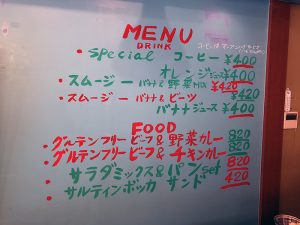 MENU
DRINK
・Special コーヒー ¥400
オレンジジュース ¥400
・スムージー バナナ&野菜MIX ¥420
・スムージー バナナ&ビーツ ¥420
バナナジュース ¥400
FOOD
・グルテンフリービーフ&野菜カレー 820
・グルテンフリービーフ&チキンカレー 820
・サラダミックス&パンset 820
・サルティンボッカ サンド 420